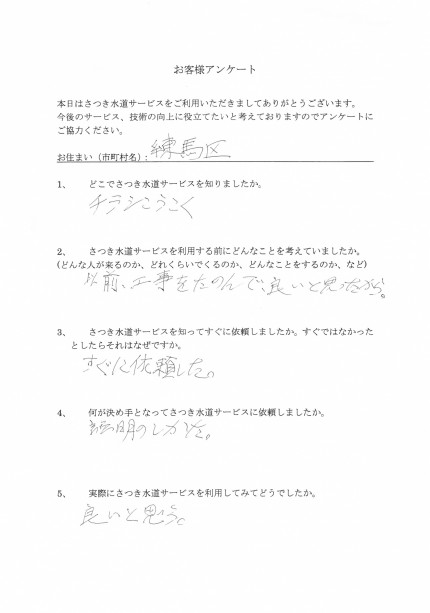 お客様アンケート
本日はさつき水道サービスをご利用いただきましてありがとうございます。
今後のサービス、技術の向上に役立てたいと考えておりますのでアンケートに
ご協力ください。
お住まい（市町村名）：練馬区
1、 どこでさつき水道サービスを知りましたか。
チラシこうこく
2、 さつき水道サービスを利用する前にどんなことを考えていましたか。
(どんな人が来るのか、どれくらいでくるのか、どんなことをするのか、など)
以前、工事をたのんで、良いと思ったから。
3、 さつき水道サービスを知ってすぐに依頼しましたか。すぐではなかった
としたらそれはなぜですか。
すぐに依頼した。
4、 何が決め手となってさつき水道サービスに依頼しましたか。
説明のしかた。
5、 実際にさつき水道サービスを利用してみてどうでしたか。
良いと思う。